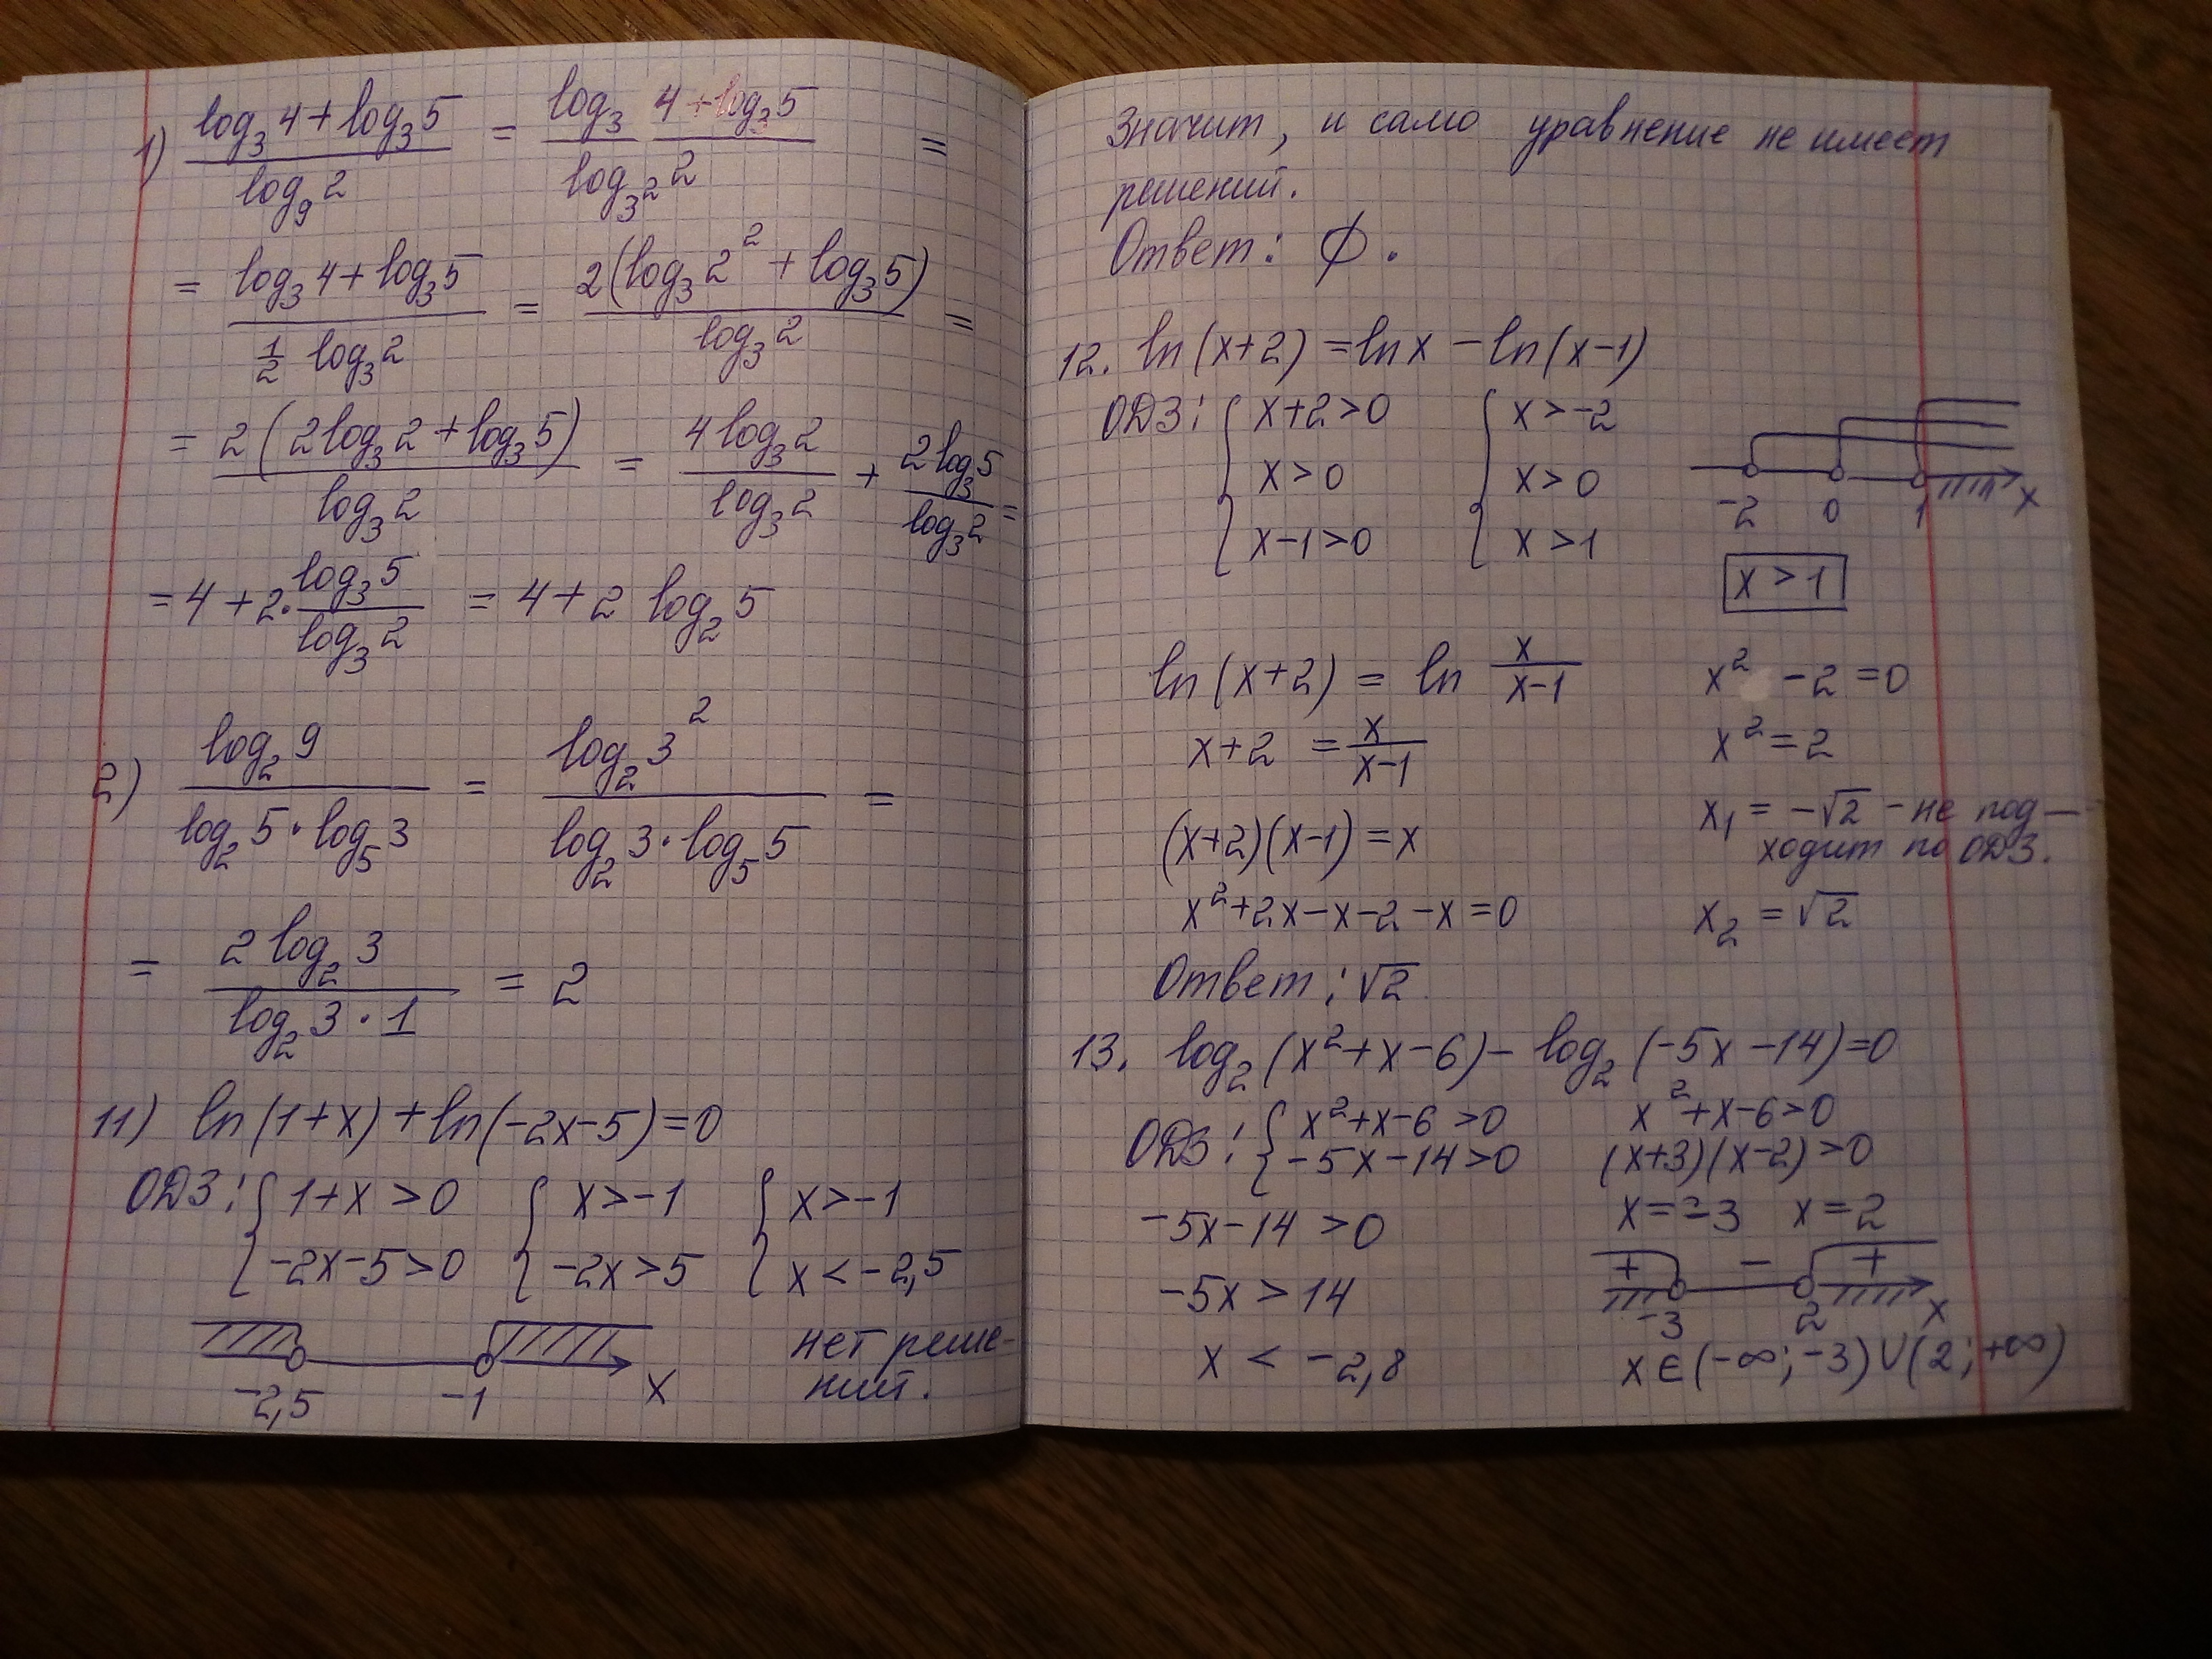 1) (log₃4 + log₃5)/(log₉2) = (log₃ 4 + log₃5)/(log₃² 2) =
= (log₃4 + log₃5)/(½ log₃2) = 2(log₃2² + log₃5)/(log₃2) =
= 2(2log₃2 + log₃5)/(log₃2) = (4log₃2)/(log₃2) + (2log₃5)/(log₃2) =
= 4 + 2·(log₃5)/(log₃2) = 4 + 2 log₂5
2) (log₂9)/(log₂5·log₅3) = (log₂3²)/(log₂3·log₅5) =
= (2log₂3)/(log₂3·1) = 2
11) ln(1+x) + ln(-2x-5) = 0
ОДЗ: { 1+x > 0 { x > -1 { x > -1
{ -2x-5 > 0 { -2x > 5 { x < -2,5
-2,5 -1 x
нет реше-
ний.
Значит, и само уравнение не имеет
решений.
Ответ: ∅.
12. ln(x+2) = lnx - ln(x-1)
ОДЗ: { x+2>0 { x>-2
{ x>0 { x>0
{ x-1>0 { x>1
-2 0 1 x
x > 1
ln(x+2) = ln x/(x-1)
x+2 = x/(x-1)
(x+2)(x-1) = x
x²+2x-x-2-x=0
x² -2 = 0
x² = 2
x₁ = -√2 - не под-
ходит по ОДЗ.
x₂ = √2
Ответ: √2
13. log₂(x²+x-6) - log₂(-5x-14)=0
ОДЗ: { x²+x-6 >0
{ -5x-14>0
-5x-14 > 0
-5x > 14
x < -2,8
x²+x-6>0
(x+3)(x-2)>0
x = -3 x = 2
+ - +
-3 2 x
x∈(-∞;-3)∪(2;+∞)